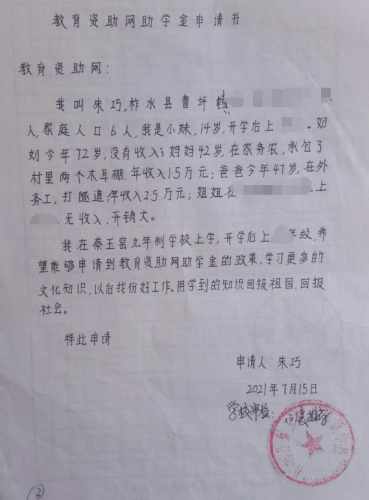 教育资助网助学金申请书
教育资助网:
我叫朱巧,柞水县曹坪镇
人,家庭人口6人,我是小妹,14岁,开学后上 。奶
奶今年72岁,没有收入;妈妈42岁,在家务农,承包了
村里两个木耳棚,年收入1.5万元;爸爸今年47岁,在外
务工,打隧道,年收入2.5万元;姐姐在 上
,无收入,开销大。
我在秦王宫九年制学校上学,开学后上 年级,希
望能够申请到教育资助网助学金的政策,学习更多的
文化知识,以后找份好工作。用学到的知识回报祖国,回报
社会。
特此申请
申请人:朱巧
2021年7月15日
学校审核:
2